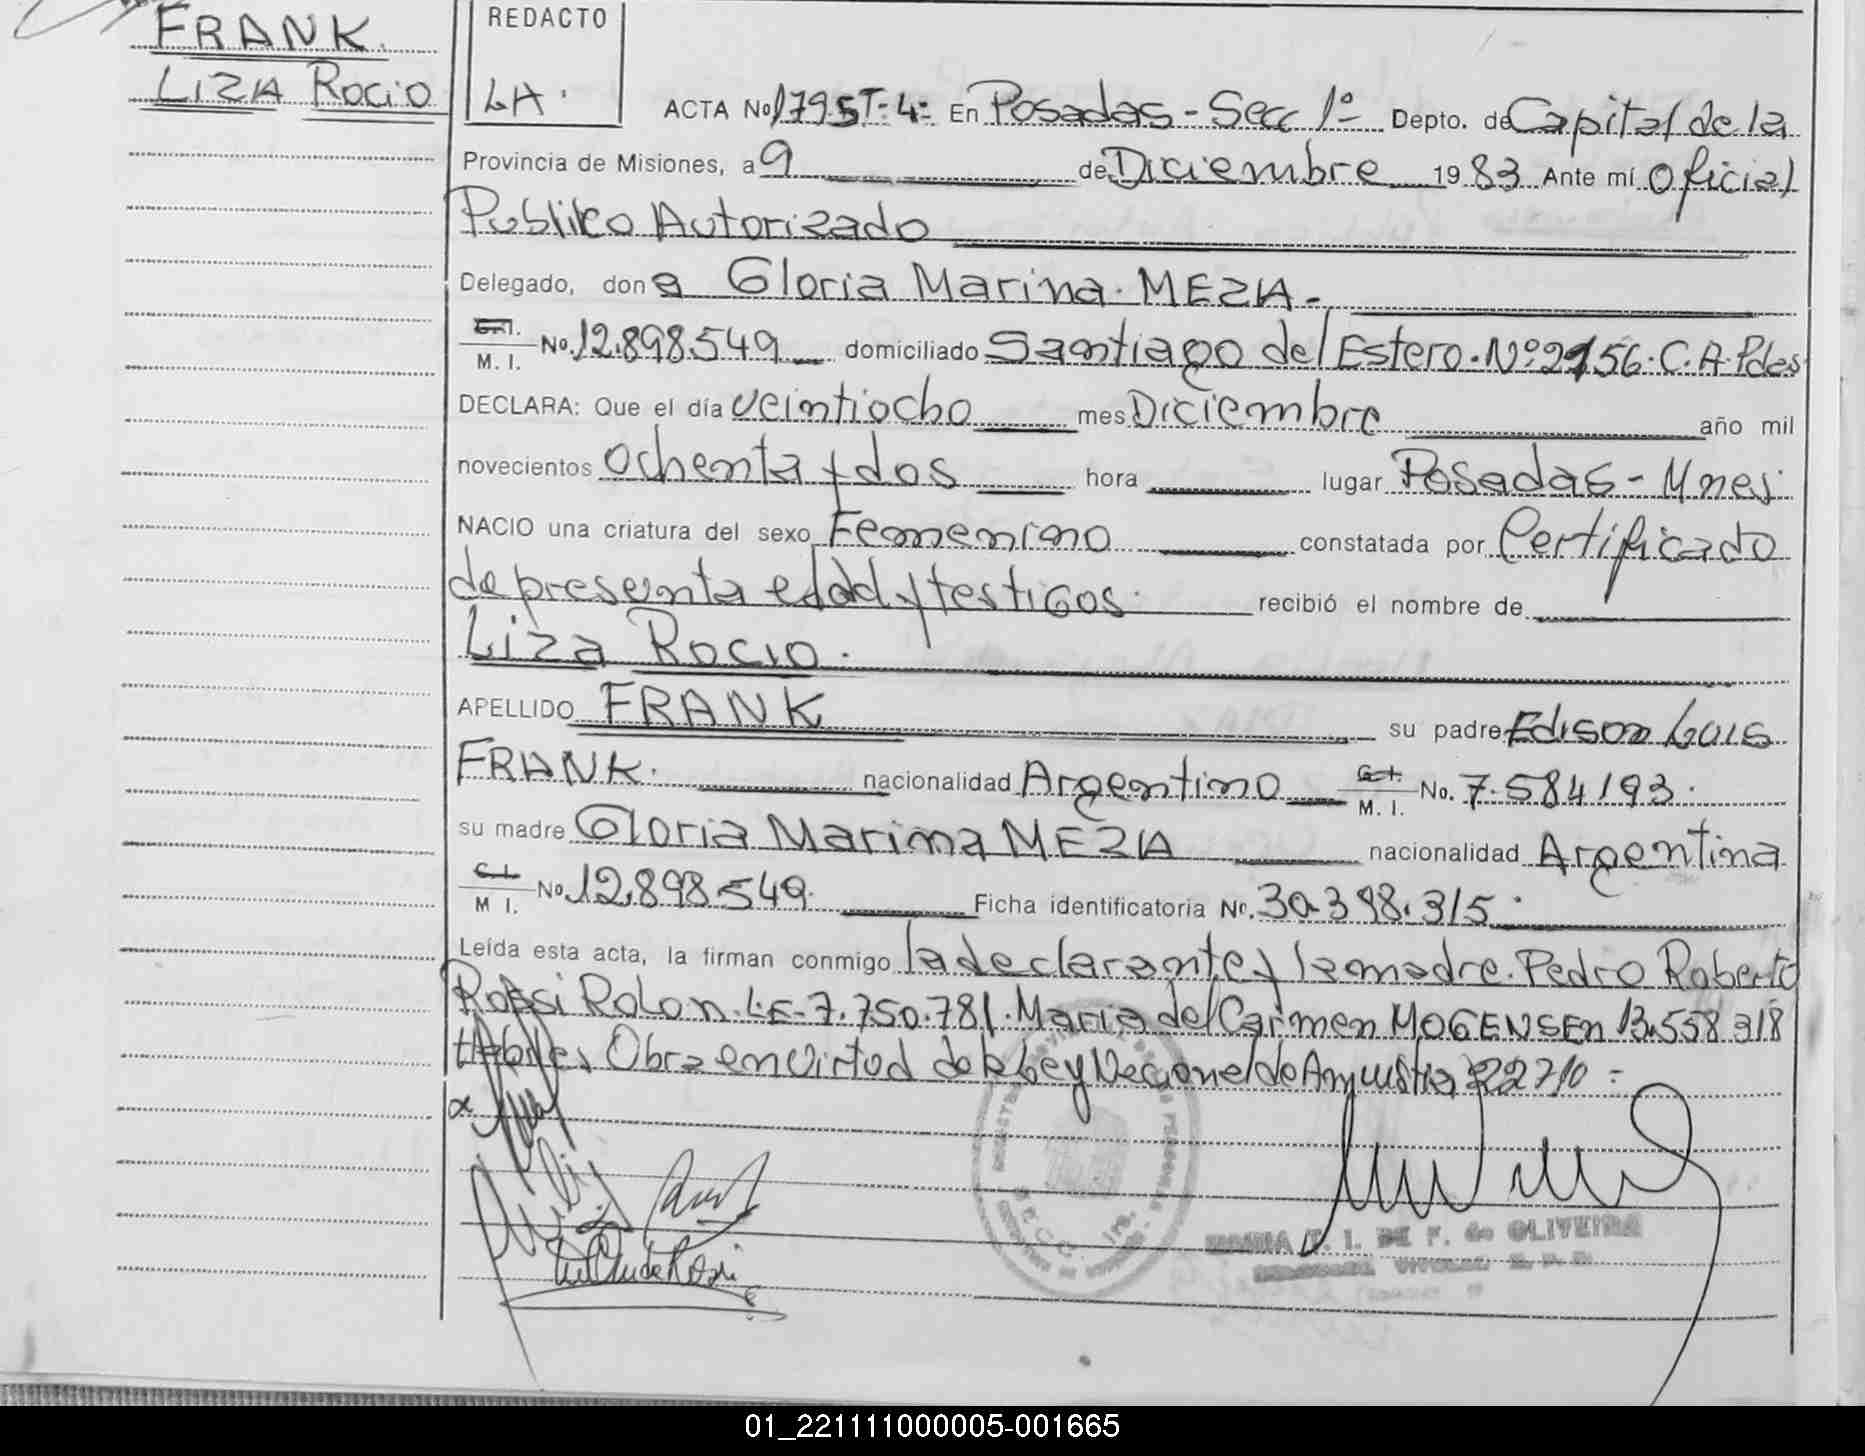 FRANK.
LIZA ROCIO
REDACTO
LA.
ACTA No 1795 T-4- En Posadas - Secc 1º Depto. de Capital de la
Provincia de Misiones, a 9 de Diciembre 1983 Ante mí Oficial
Publico Autorizado
Delegado, don a Gloria Marina MEZA-
M. I. No. 12.898.549 domiciliado Santiago del Estero. Nº 2156. C.A. Pdas
DECLARA: Que el día veintiocho mes Diciembre año mil
novecientos ochenta y dos hora lugar Posadas - Mnes
NACIO una criatura del sexo Femenino constatada por Certificado
de presenta edad y testigos. recibió el nombre de
Liza Rocio.
APELLIDO FRANK su padre Edison Luis
FRANK. nacionalidad Argentino C.I. M. I. No. 7.584.193.
su madre Gloria Marina MEZA nacionalidad Argentina
C.I. M I. No. 12.898.549. Ficha identificatoria Nº. 30.398.315.
Leída esta acta, la firman conmigo la declarante y la madre. Pedro Roberto
Rossi Rolon. LE-7.750.781. Maria del Carmen MOGENSEN 13.558.318
Habiles Obra en virtud de la Ley Nacional de Amnistia 22710=
SECC. 1ra.
DE F. de OLIVEIRA
01_221111000005-001665